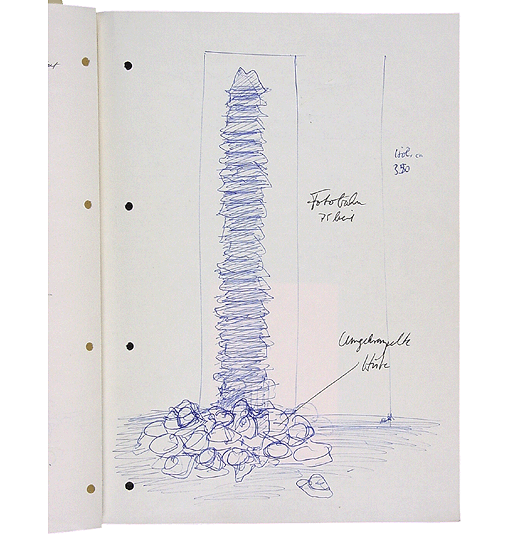 Höh. ca
350
Fotobahn
75 breit
Umgekrempelte
Hüte